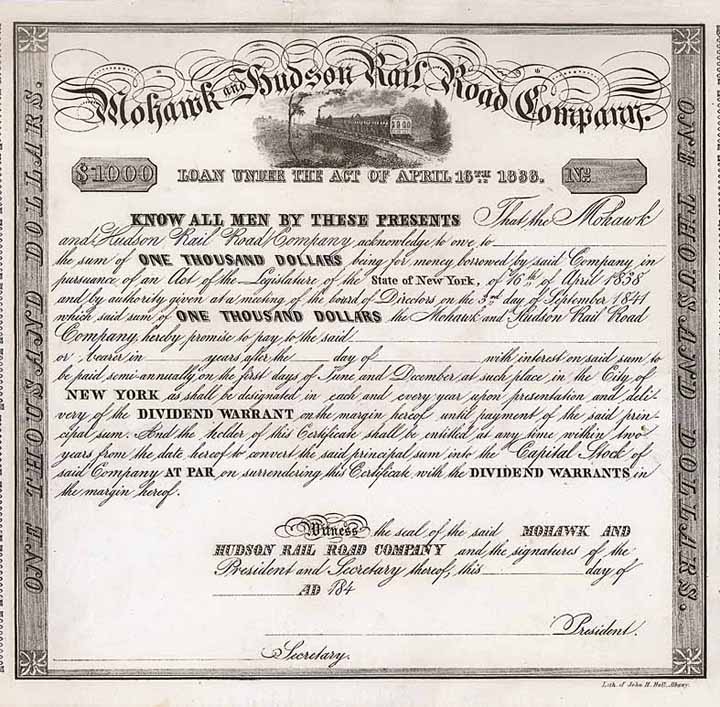 Mohawk and Hudson Rail Road Company.
$1000
LOAN UNDER THE ACT OF APRIL 16TH 1838.
No.
KNOW ALL MEN BY THESE PRESENTS That the Mohawk
and Hudson Rail Road Company acknowledge to owe to
the sum of ONE THOUSAND DOLLARS being for money borrowed by said Company in
pursuance of an Act of the Legislature of the State of New York, of 16th of April 1838
and by authority given at a meeting of the board of Directors on the 3rd day of September 1841
which said sum of ONE THOUSAND DOLLARS the Mohawk and Hudson Rail Road
Company, hereby promise to pay to the said
or bearer in years after the day of with interest on said sum to
be paid semi-annually on the first days of June and December, at such place in the City of
NEW YORK as shall be designated in each and every year upon presentation and deli-
very of the DIVIDEND WARRANT on the margin hereof until payment of the said prin-
cipal sum. And the holder of this Certificate shall be entitled at any time within two
years from the date hereof to convert the said principal sum into the Capital Stock of
said Company AT PAR on surrendering this Certificate with the DIVIDEND WARRANTS in
the margin hereof.
Witness the seal of the said MOHAWK AND
HUDSON RAIL ROAD COMPANY and the signatures of the
President and Secretary thereof, this day of
AD 184
President.
Secretary.
ONE THOUSAND DOLLARS.
ONE THOUSAND DOLLARS.
Lith. of John H. Hall, Albany.